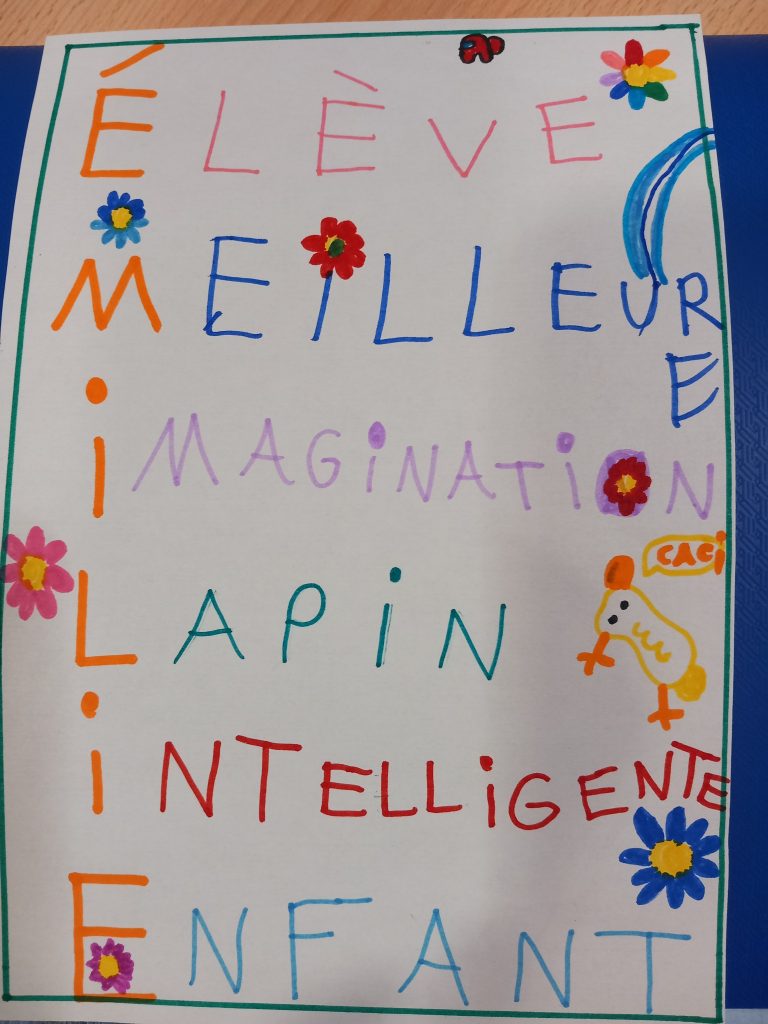 ÉLÈVE
MEILLEUR
E
iMAGiNATiON
CACi
LAPiN
iNTELLiGENTE
ENFANT